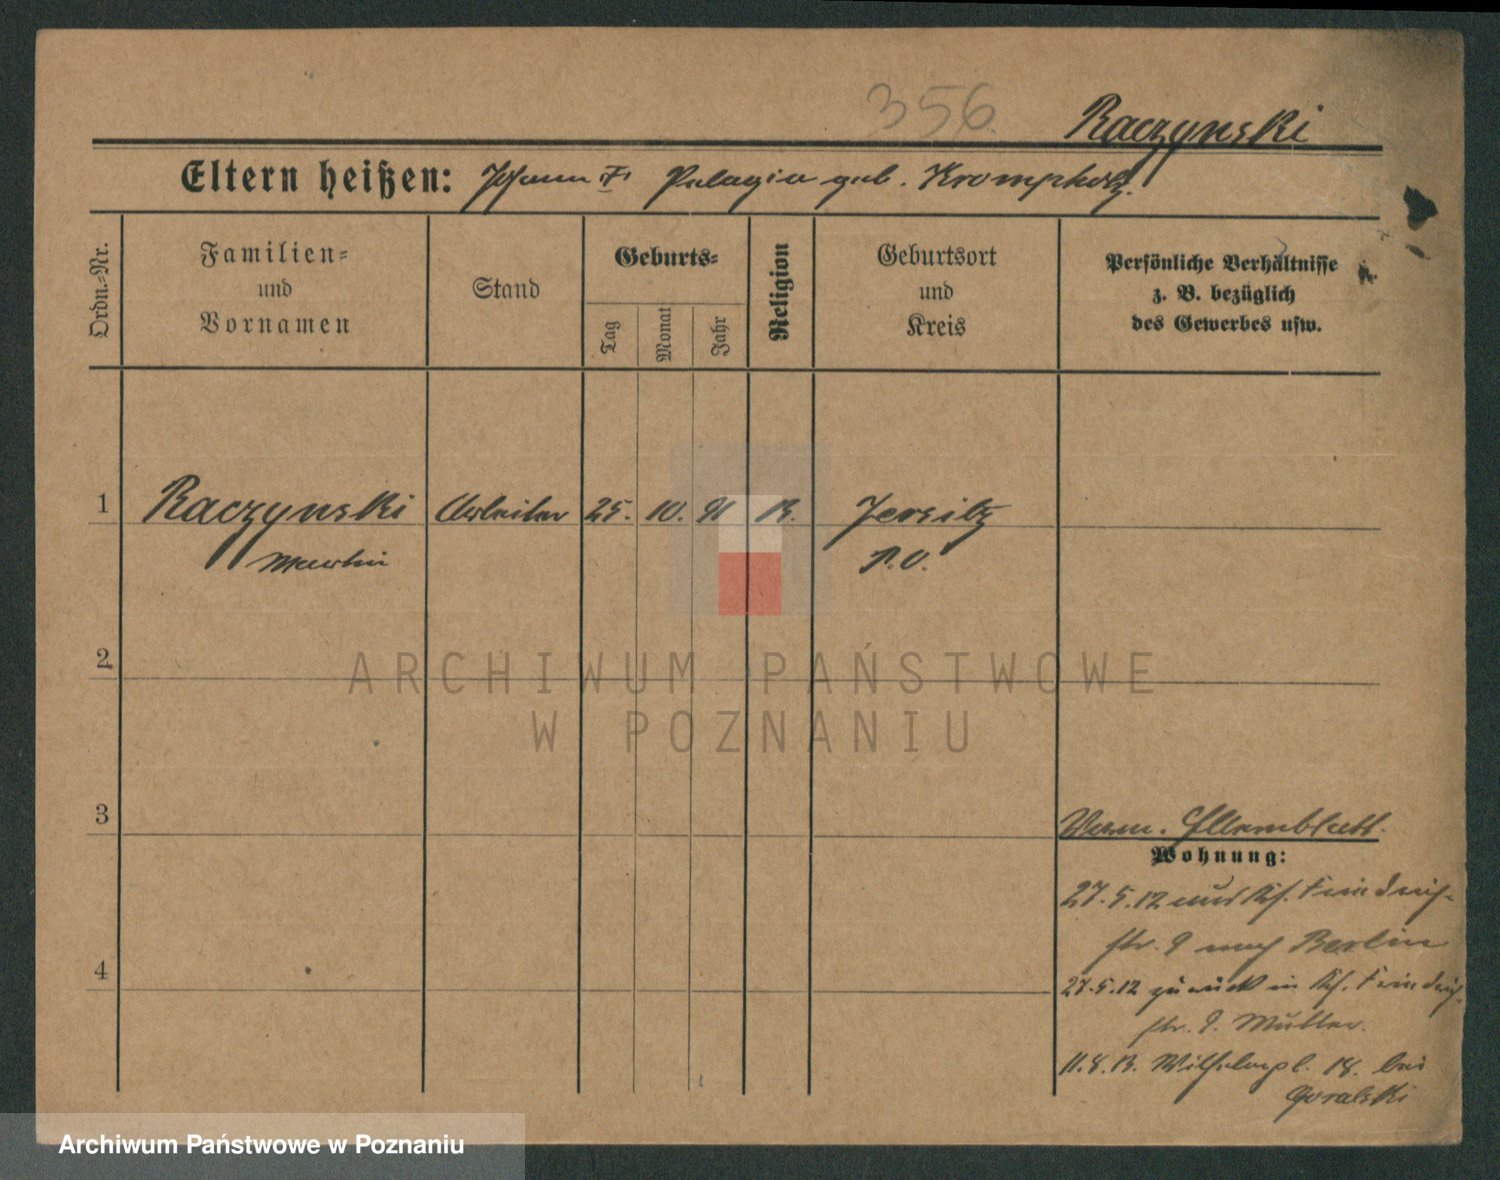 356
Raczynski
Eltern heißen: Johann † Pelagia geb. Krompholz.
Ordn.-Nr.
Familien-
und
Vornamen
Stand
Geburts-
Tag
Monat
Jahr
Religion
Geburtsort
und
Kreis
Persönliche Verhältnisse
z. B. bezüglich
des Gewerbes usw.
1 Raczynski Arbeiter 25. 10. 91 K. Jersitz
Martin P.O.
2
3
4
Verm. Elternblatt.
Wohnung:
27.5.12 aus Kh. Friedrich-
str. 9 nach Berlin
27.5.12 zurück in Kh. Friedrich-
str. 9. Mutter.
11.8.13. Wilhelmpl. 18. bei
Goralski
ARCHIWUM PAŃSTWOWE
W POZNANIU
Archiwum Państwowe w Poznaniu